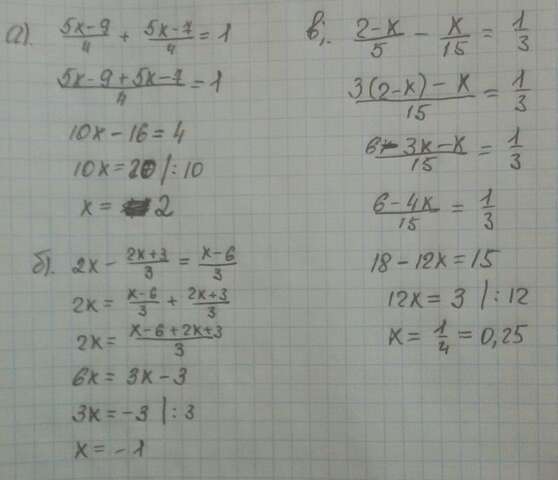 а). (5x-9)/4 + (5x-7)/4 = 1
(5x-9+5x-7)/4 = 1
10x-16=4
10x=20 |:10
x= 2
б). 2x - (2x+3)/3 = (x-6)/3
2x= (x-6)/3 + (2x+3)/3
2x= (x-6+2x+3)/3
6x = 3x-3
3x=-3 |:3
x=-1
в). (2-x)/5 - x/15 = 1/3
(3(2-x)-x)/15 = 1/3
(6-3x-x)/15 = 1/3
(6-4x)/15 = 1/3
18-12x=15
12x= 3 |:12
x= 1/4 = 0,25